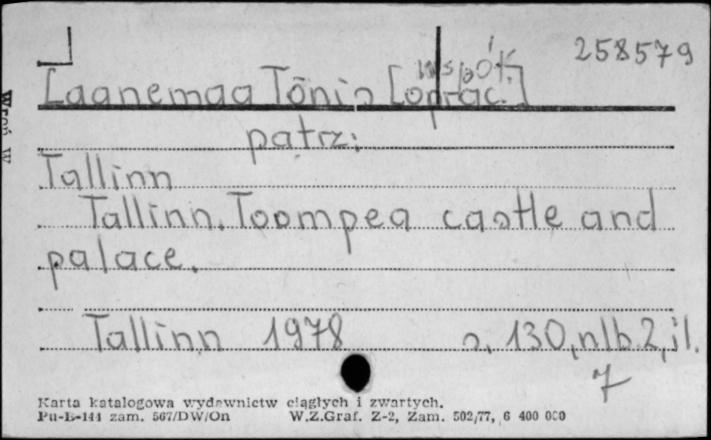 258579
współ.
Laanemaa Tõnis [oprac.]
patrz:
Tallinn
Tallinn. Toompea castle and
palace.
Tallinn 1978 s. 130, nlb. 2, il.
7
Karta katalogowa wydawnictw ciągłych i zwartych.
Pu-B-144 zam. 567/DW/On W.Z.Graf. Z-2, Zam. 502/77, 6 400 000